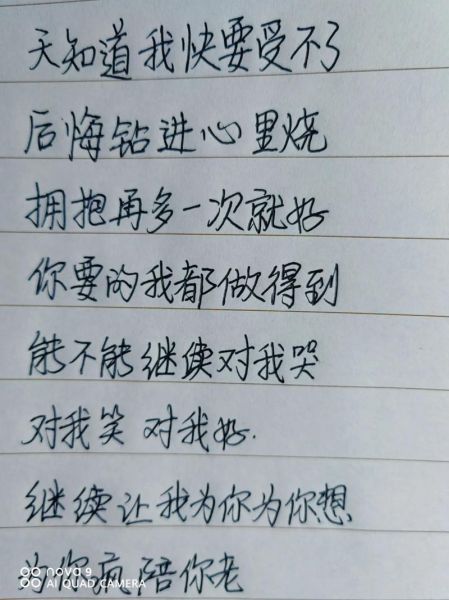 天知道我快要受不了
后悔钻进心里烧
拥抱再多一次就好
你要的我都做得到
能不能继续对我哭
对我笑 对我好.
继续让我为你为你想
为你疯陪你老
nova 9
AI QUAD CAMERA